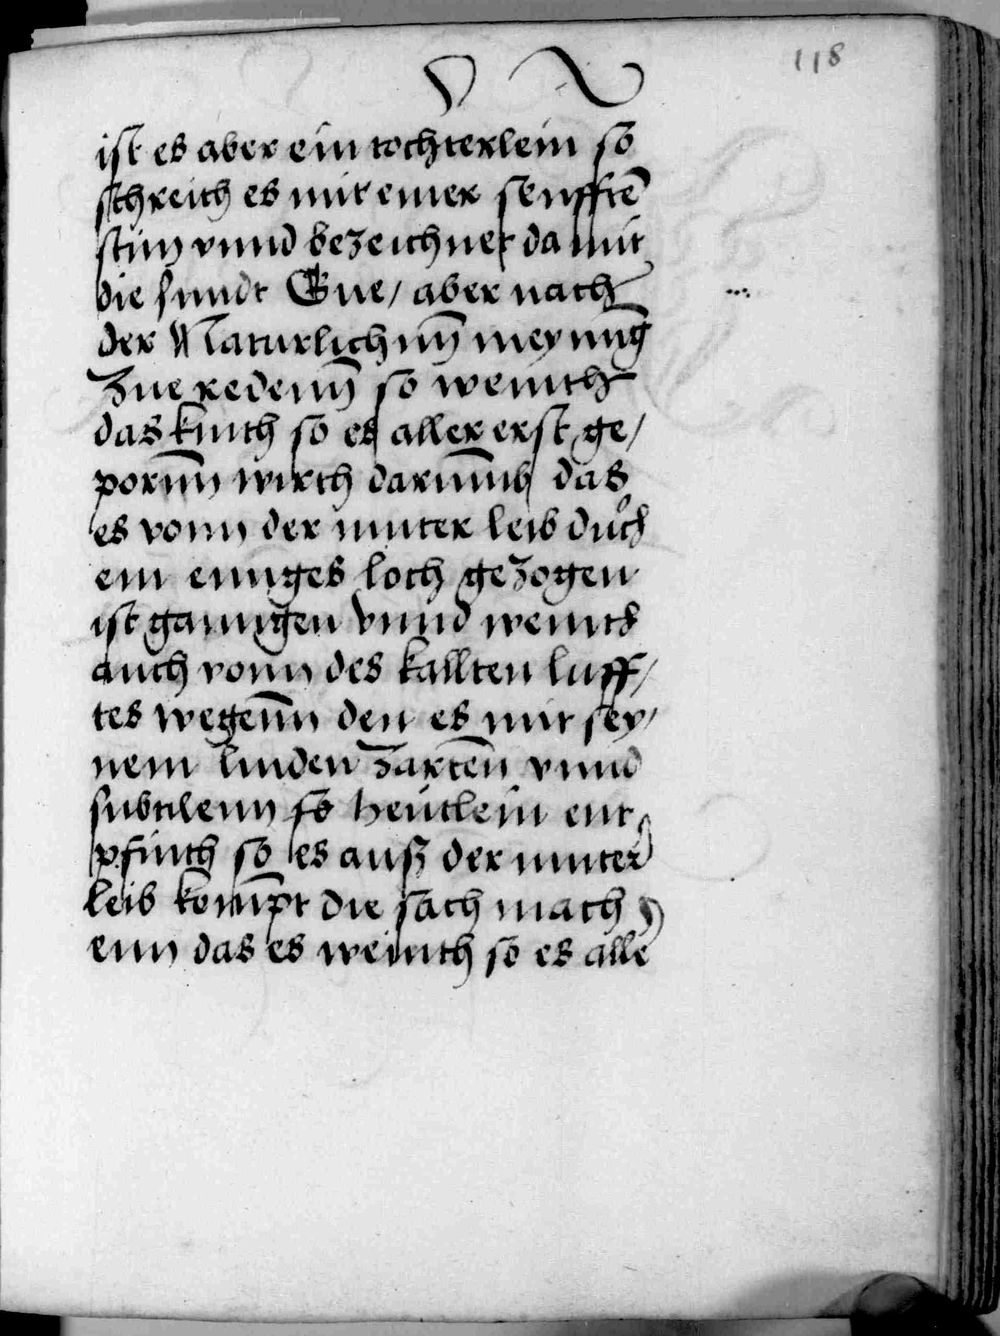 118
ist es aber ein tochterlein so
schreith es mit einer senfftē
stim vnnd bezeichnet da mit
die sundt Eue / aber nach
der Naturlichnn̄ meynung
Zue redenn̄ so weinth
das kinth so es aller erst ge/
pornn̄ wirth darumb das
es vonn der muter leib durch
ein einges loch gezogen
ist ganngen Vnnd weinth
auch vonn des kallten luff/
tes wegenn̄ den es mit sey/
nem linden Zartēn vnnd
subtilenn heutlein ent
pfinth so es auß der muter
leib komp̄t die sach mach
enn das es weinth so es alle